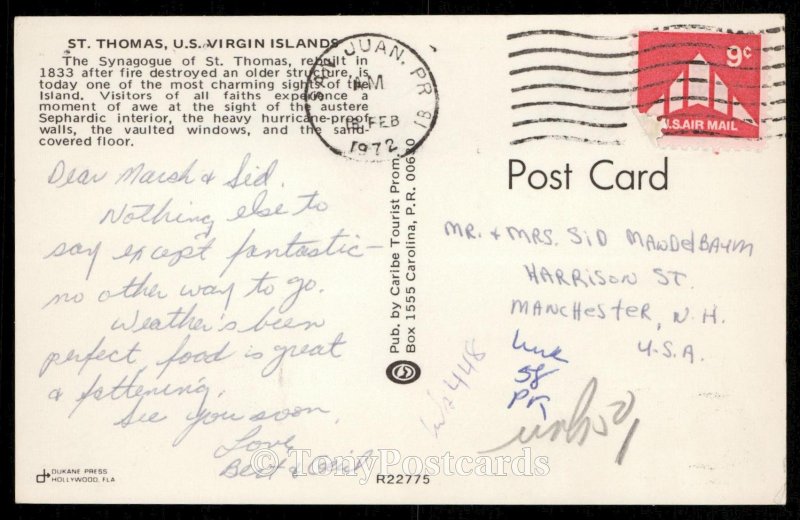 ST. THOMAS, U.S. VIRGIN ISLANDS
The Synagogue of St. Thomas, rebuilt in
1833 after fire destroyed an older structure, is
today one of the most charming sights of the
Island. Visitors of all faiths experience a
moment of awe at the sight of the austere
Sephardic interior, the heavy hurricane-proof
walls, the vaulted windows, and the sand-
covered floor.
SAN JUAN, PR
AM
18 FEB
1972
9¢
U.S. AIR MAIL
Post Card
Dear Marsh & Sid.
Nothing else to
say except fantastic –
no other way to go.
Weather's been
perfect, food is great
& fattening.
See you soon,
Love,
Pub. by Caribe Tourist Prom.
Box 1555 Carolina, P.R. 00630
MR. & MRS. SID MANDELBAUM
HARRISON ST.
MANCHESTER, N.H.
U.S.A.
58
©TonyPostcards
DUKANE PRESS
HOLLYWOOD, FLA
R22775